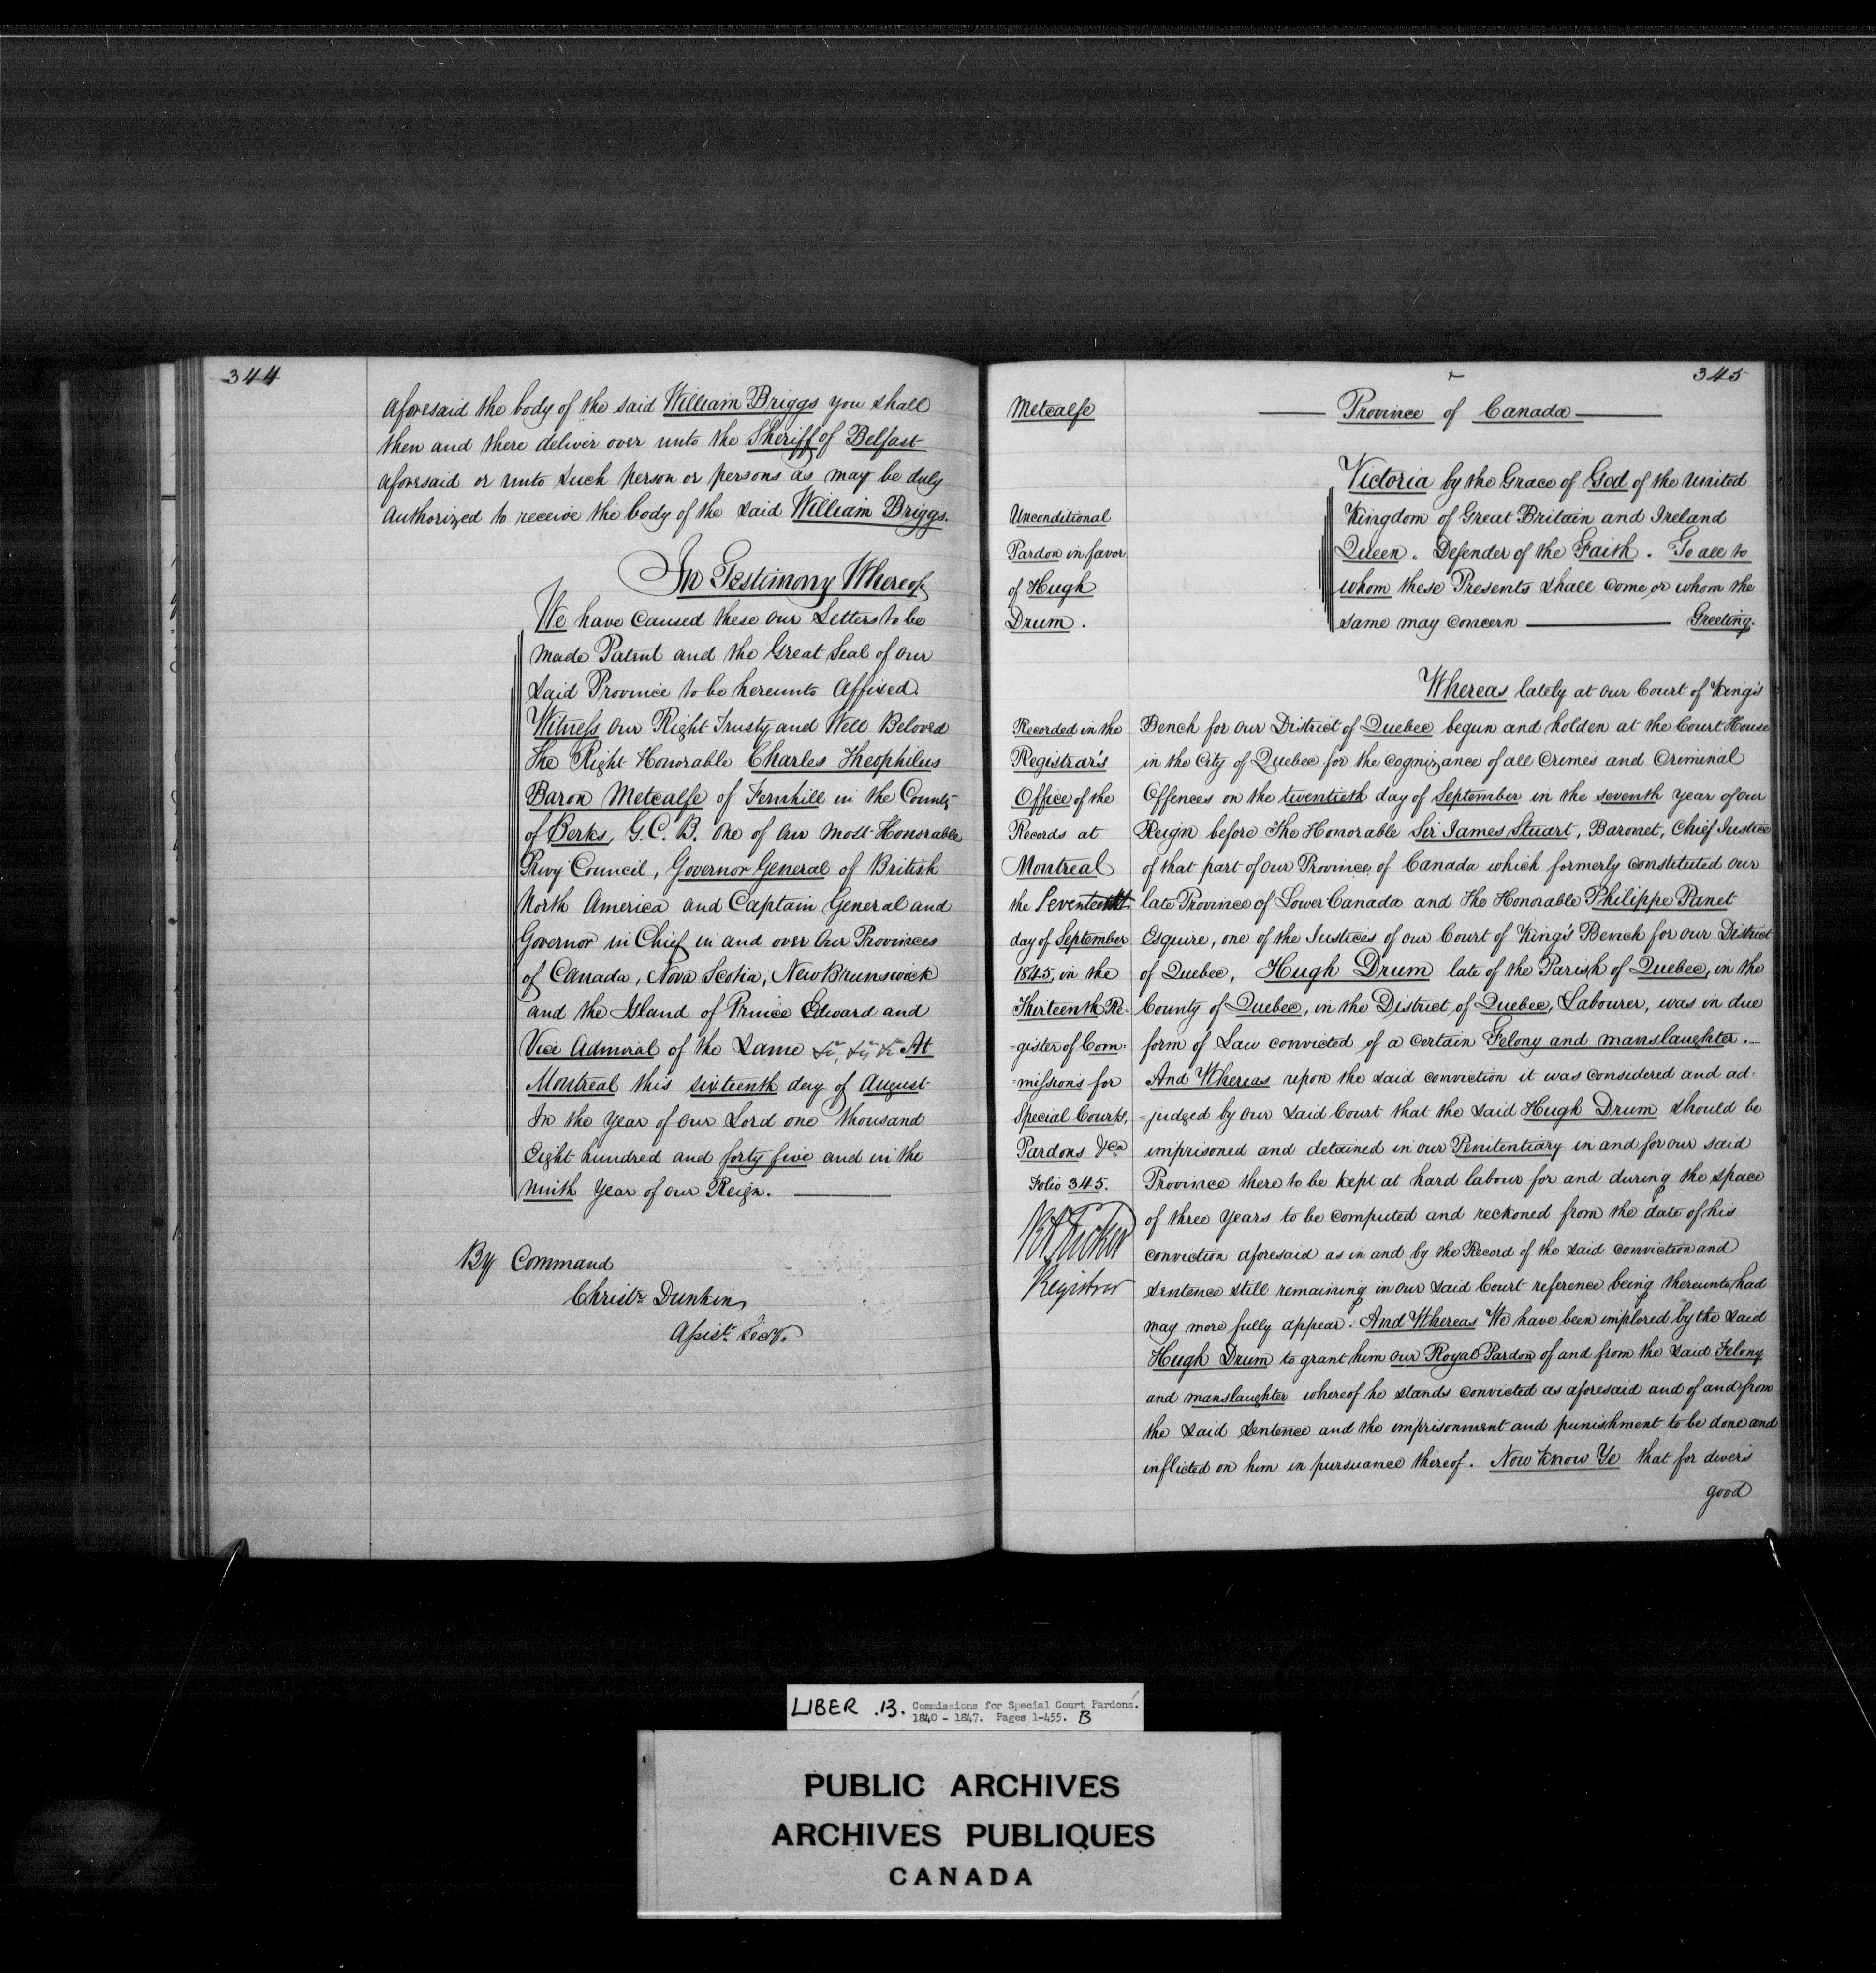 344
aforesaid the body of the said William Briggs you shall
then and there deliver over unto the Sheriff of Belfast
aforesaid or unto such person or persons as may be duly
authorized to receive the body of the said William Briggs.
In Testimony Whereof
We have caused these our Letters to be
made Patent and the Great Seal of our
said Province to be hereunto affixed.
Witness our Right Trusty and Well Beloved
The Right Honorable Charles Theophilus
Baron Metcalfe of Fernhill in the County
of Berks, G.C.B. one of our most Honorable
Privy Council, Governor General of British
North America and Captain General and
Governor in Chief in and over our Provinces
of Canada, Nova Scotia, New Brunswick
and the Island of Prince Edward and
Vice Admiral of the same &c, &c, &c At
Montreal this sixteenth day of August
In the year of our Lord one thousand
Eight hundred and forty five and in the
ninth year of our Reign.
By Command
Christr Dunkin
Assist. Secy.
345
Metcalfe
Province of Canada
Unconditional
Pardon in favor
of Hugh
Drum.
Victoria by the Grace of God of the United
Kingdom of Great Britain and Ireland
Queen. Defender of the Faith. To all to
whom these Presents shall come, or whom the
same may concern Greeting.
Recorded in the
Registrar's
Office of the
Records at
Montreal
the Seventeenth
day of September
1845, in the
Thirteenth Re-
-gister of Com-
-missions for
Special Courts,
Pardons &ca
Folio 345.
Registrar
Whereas lately at our Court of King's
Bench for our District of Quebec begun and holden at the Court House
in the City of Quebec for the cognizance of all crimes and Criminal
Offences on the twentieth day of September in the seventh year of our
Reign before The Honorable Sir James Stuart, Baronet, Chief Justice
of that part of our Province of Canada which formerly constituted our
late Province of Lower Canada and The Honorable Philippe Panet
Esquire, one of the Justices of our Court of King's Bench for our District
of Quebec, Hugh Drum late of the Parish of Quebec, in the
County of Quebec, in the District of Quebec, Labourer, was in due
form of Law convicted of a certain Felony and manslaughter.
And Whereas upon the said conviction it was considered and ad-
-judged by our said Court that the said Hugh Drum should be
imprisoned and detained in our Penitentiary in and for our said
Province there to be kept at hard labour for and during the space
of three years to be computed and reckoned from the date of his
conviction aforesaid as in and by the Record of the said conviction and
sentence still remaining in our said Court reference being thereunto had
may more fully appear. And Whereas We have been implored by the said
Hugh Drum to grant him our Royal Pardon of and from the said Felony
and manslaughter whereof he stands convicted as aforesaid and of and from
the said sentence and the imprisonment and punishment to be done and
inflicted on him in pursuance thereof. Now Know Ye that for divers
good
LIBER .13. Commissions for Special Court Pardons.
1840 - 1847. Pages 1-455. B
PUBLIC ARCHIVES
ARCHIVES PUBLIQUES
CANADA